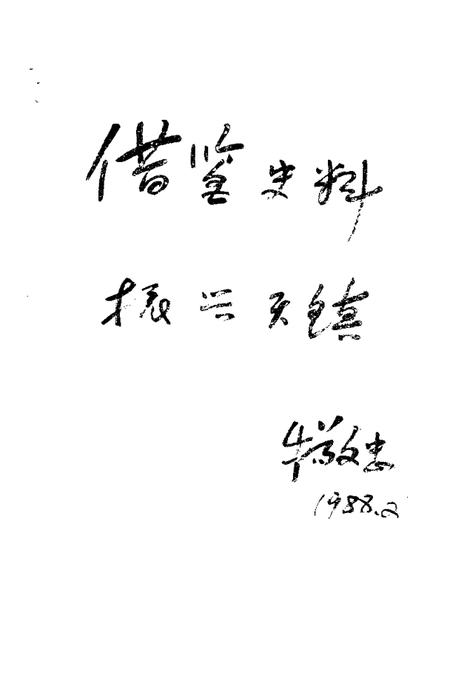 借鉴史料
振兴天镇
牛敬忠
1988.2